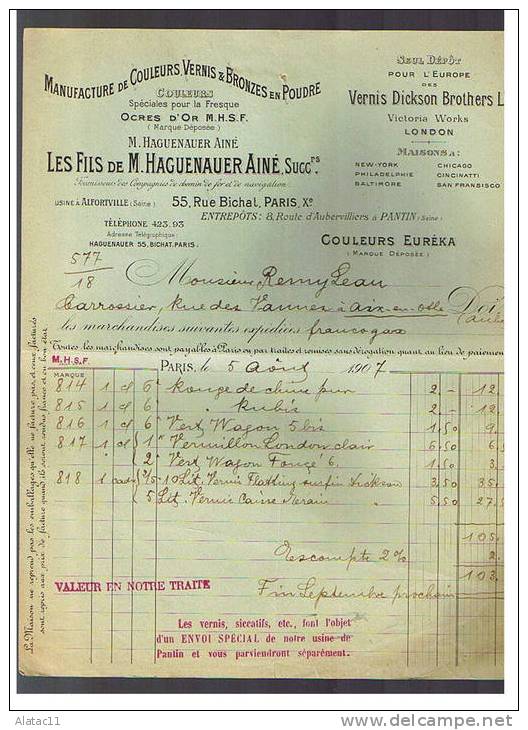 MANUFACTURE DE COULEURS, VERNIS & BRONZES EN POUDRE
COULEURS
Spéciales pour la Fresque
OCRES D'OR M.H.S.F.
(Marque Déposée)
M. HAGUENAUER AINÉ
LES FILS DE M. HAGUENAUER AINÉ, SUCCrs
Fournisseurs des Compagnies de chemin de fer et de navigation
USINE À ALFORTVILLE (Seine)
55, Rue Bichat, PARIS, Xe
ENTREPÔTS: 8, Route d'Aubervilliers à PANTIN (Seine)
TÉLÉPHONE 423.93
Adresse Télégraphique:
HAGUENAUER 55, BICHAT. PARIS.
SEUL DÉPÔT
POUR L'EUROPE
DES
Vernis Dickson Brothers L
Victoria Works
LONDON
MAISONS à:
NEW-YORK CHICAGO
PHILADELPHIE CINCINATTI
BALTIMORE SAN FRANSISCO
COULEURS EURÉKA
(MARQUE DÉPOSÉE)
577
18
Monsieur Remy Jean
Carrossier, Rue des Vannes à Aix-en-Othe Doi
les marchandises suivantes expédiées franco gare
Toutes les marchandises sont payables à Paris ou par traites et remises sans dérogation quant au lieu de paiement
M.H.S.F.
MARQUE
PARIS, le 5 Août 1907
814 1 cl 6 Rouge de chine pur 2 - 12
815 1 cl 6 " Rubis 2 - 12
816 1 cl 6 Vert Wagon 5 bis 1.50 9
817 1 cl 1 Vermillon London clair 6.50 6.5
2 Vert Wagon Foncé 6. 1.50 3
818 2/5 10 Lit. Vernis Flatting surfin Dickson 3.50 35
5 Lit. Vernis Caisse 5.50 27.5
105
Escompte 2% 2
103
VALEUR EN NOTRE TRAITE
Fin Septembre prochain
Les vernis, siccatifs, etc., font l'objet
d'un ENVOI SPÉCIAL de notre usine de
Pantin et vous parviendront séparément.
La Maison ne reprend pas les emballages qu'elle ne facture pas, et ceux facturés
sont repris aux prix de facture quand ils seront rendus franco et en bon état
Alatac11
delcampe.net